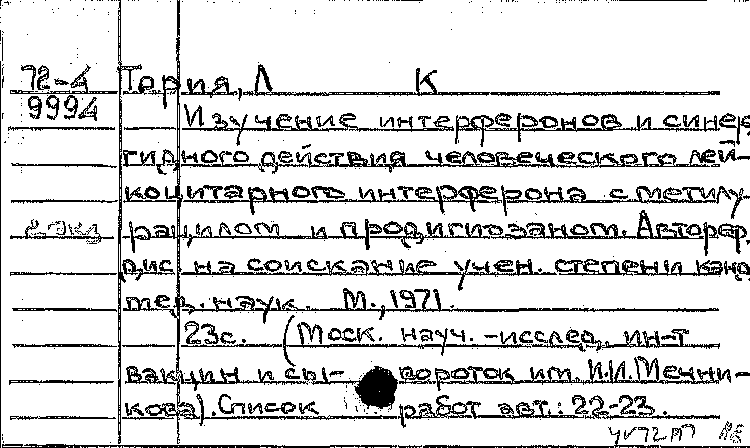 72-4 Тория, Л К
9994 Изучение интерферонов и синер
гидного действия человеческого лей-
коцитарного интерферона с метилу-
2 экз рацилом и продигиозаном. Автореф.
дис на соискание учен. степени канд
мед. наук. М., 1971.
23с. (Моск. науч.-исслед. ин-т
вакцин и сы- вороток им. И.И.Мечни-
кова). Список работ авт.: 22-23.